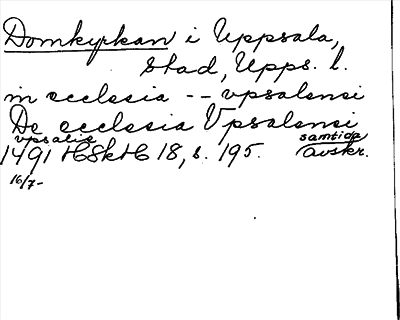 Domkyrkan i Uppsala,
Stad, Upps. l.
in ecclesia -- vpsalensi
De ecclesia Vpsalensi
vpsalie samtida
1491 HSkH 18, s. 195. avskr.
16/7-